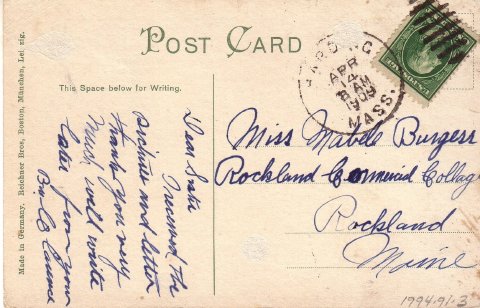 POST CARD
This Space below for Writing.
Made in Germany, Reichner Bros, Boston, München, Leipzig.
Dear Sister
I received the
pictures and letter
thank you very
much, will write
later from your
HARDING
APR
4
8 AM
1909
MASS.
Miss Mabele Burgess
Rockland Commercial College
Rockland
Maine
1994.91.3